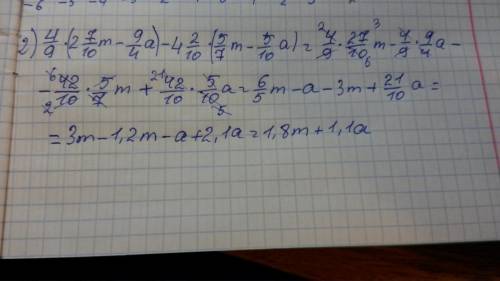 -6 -5 -4 -3
2) 4/9 · (2 7/10 m - 9/4 a) - 4 2/10 · (5/7 m - 5/10 a) = ²4/9 · 27³/10₅ m - 4/9 · 9/4 a -
- ⁶42/10₂ · 5/7 m + ²¹42/10 · 5/10₅ a = 6/5 m - a - 3m + 21/10 a =
= 3m - 1,2m - a + 2,1a = 1,8m + 1,1a